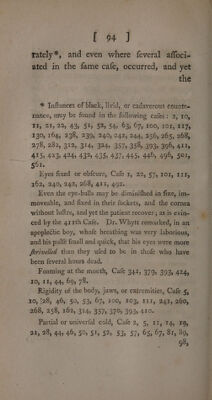 [ 94 ]
rately*, and even where ſeveral aſſoci-
ated in the ſame caſe, occurred, and yet
the
* Inſtances of black, livid, or cadaverous counte-
nance, may be found in the following caſes: 2, 10,
11, 21, 22, 43, 51, 52, 54, 63, 67, 100, 101, 117,
130, 164, 238, 239, 240, 242, 244, 256, 265, 268,
278, 282, 312, 314, 324, 357, 358, 393, 396, 411,
415, 423, 424, 432, 435, 437, 445, 446, 496, 501,
561.
Eyes fixed or obſcure, Caſe 2, 22, 57, 101, 111,
162, 240, 242, 268, 411, 492.
Even the eye-balls may be diminiſhed in ſize, im-
moveable, and fixed in their ſockets, and the cornea
without luſtre, and yet the patient recover; as is evin-
ced by the 411th Caſe. Dr. Whytt remarked, in an
apoplectic boy, whoſe breathing was very laborious,
and his pulſe ſmall and quick, that his eyes were more
ſhrivelled than they uſed to be in thoſe who have
been ſeveral hours dead.
Foaming at the mouth, Caſe 342, 379, 393, 424,
10, 11, 44, 69, 78.
Rigidity of the body, jaws, or extremities, Caſe 5,
10, 28, 46, 50, 53, 67, 100, 103, 111, 242, 260,
268, 258, 262, 314, 357, 370, 393, 410.
Partial or univerſal cold, Caſe 2, 5, 11, 14, 19,
21, 28, 44, 46, 50, 51, 52, 53, 57, 65, 67, 81, 89,
98,